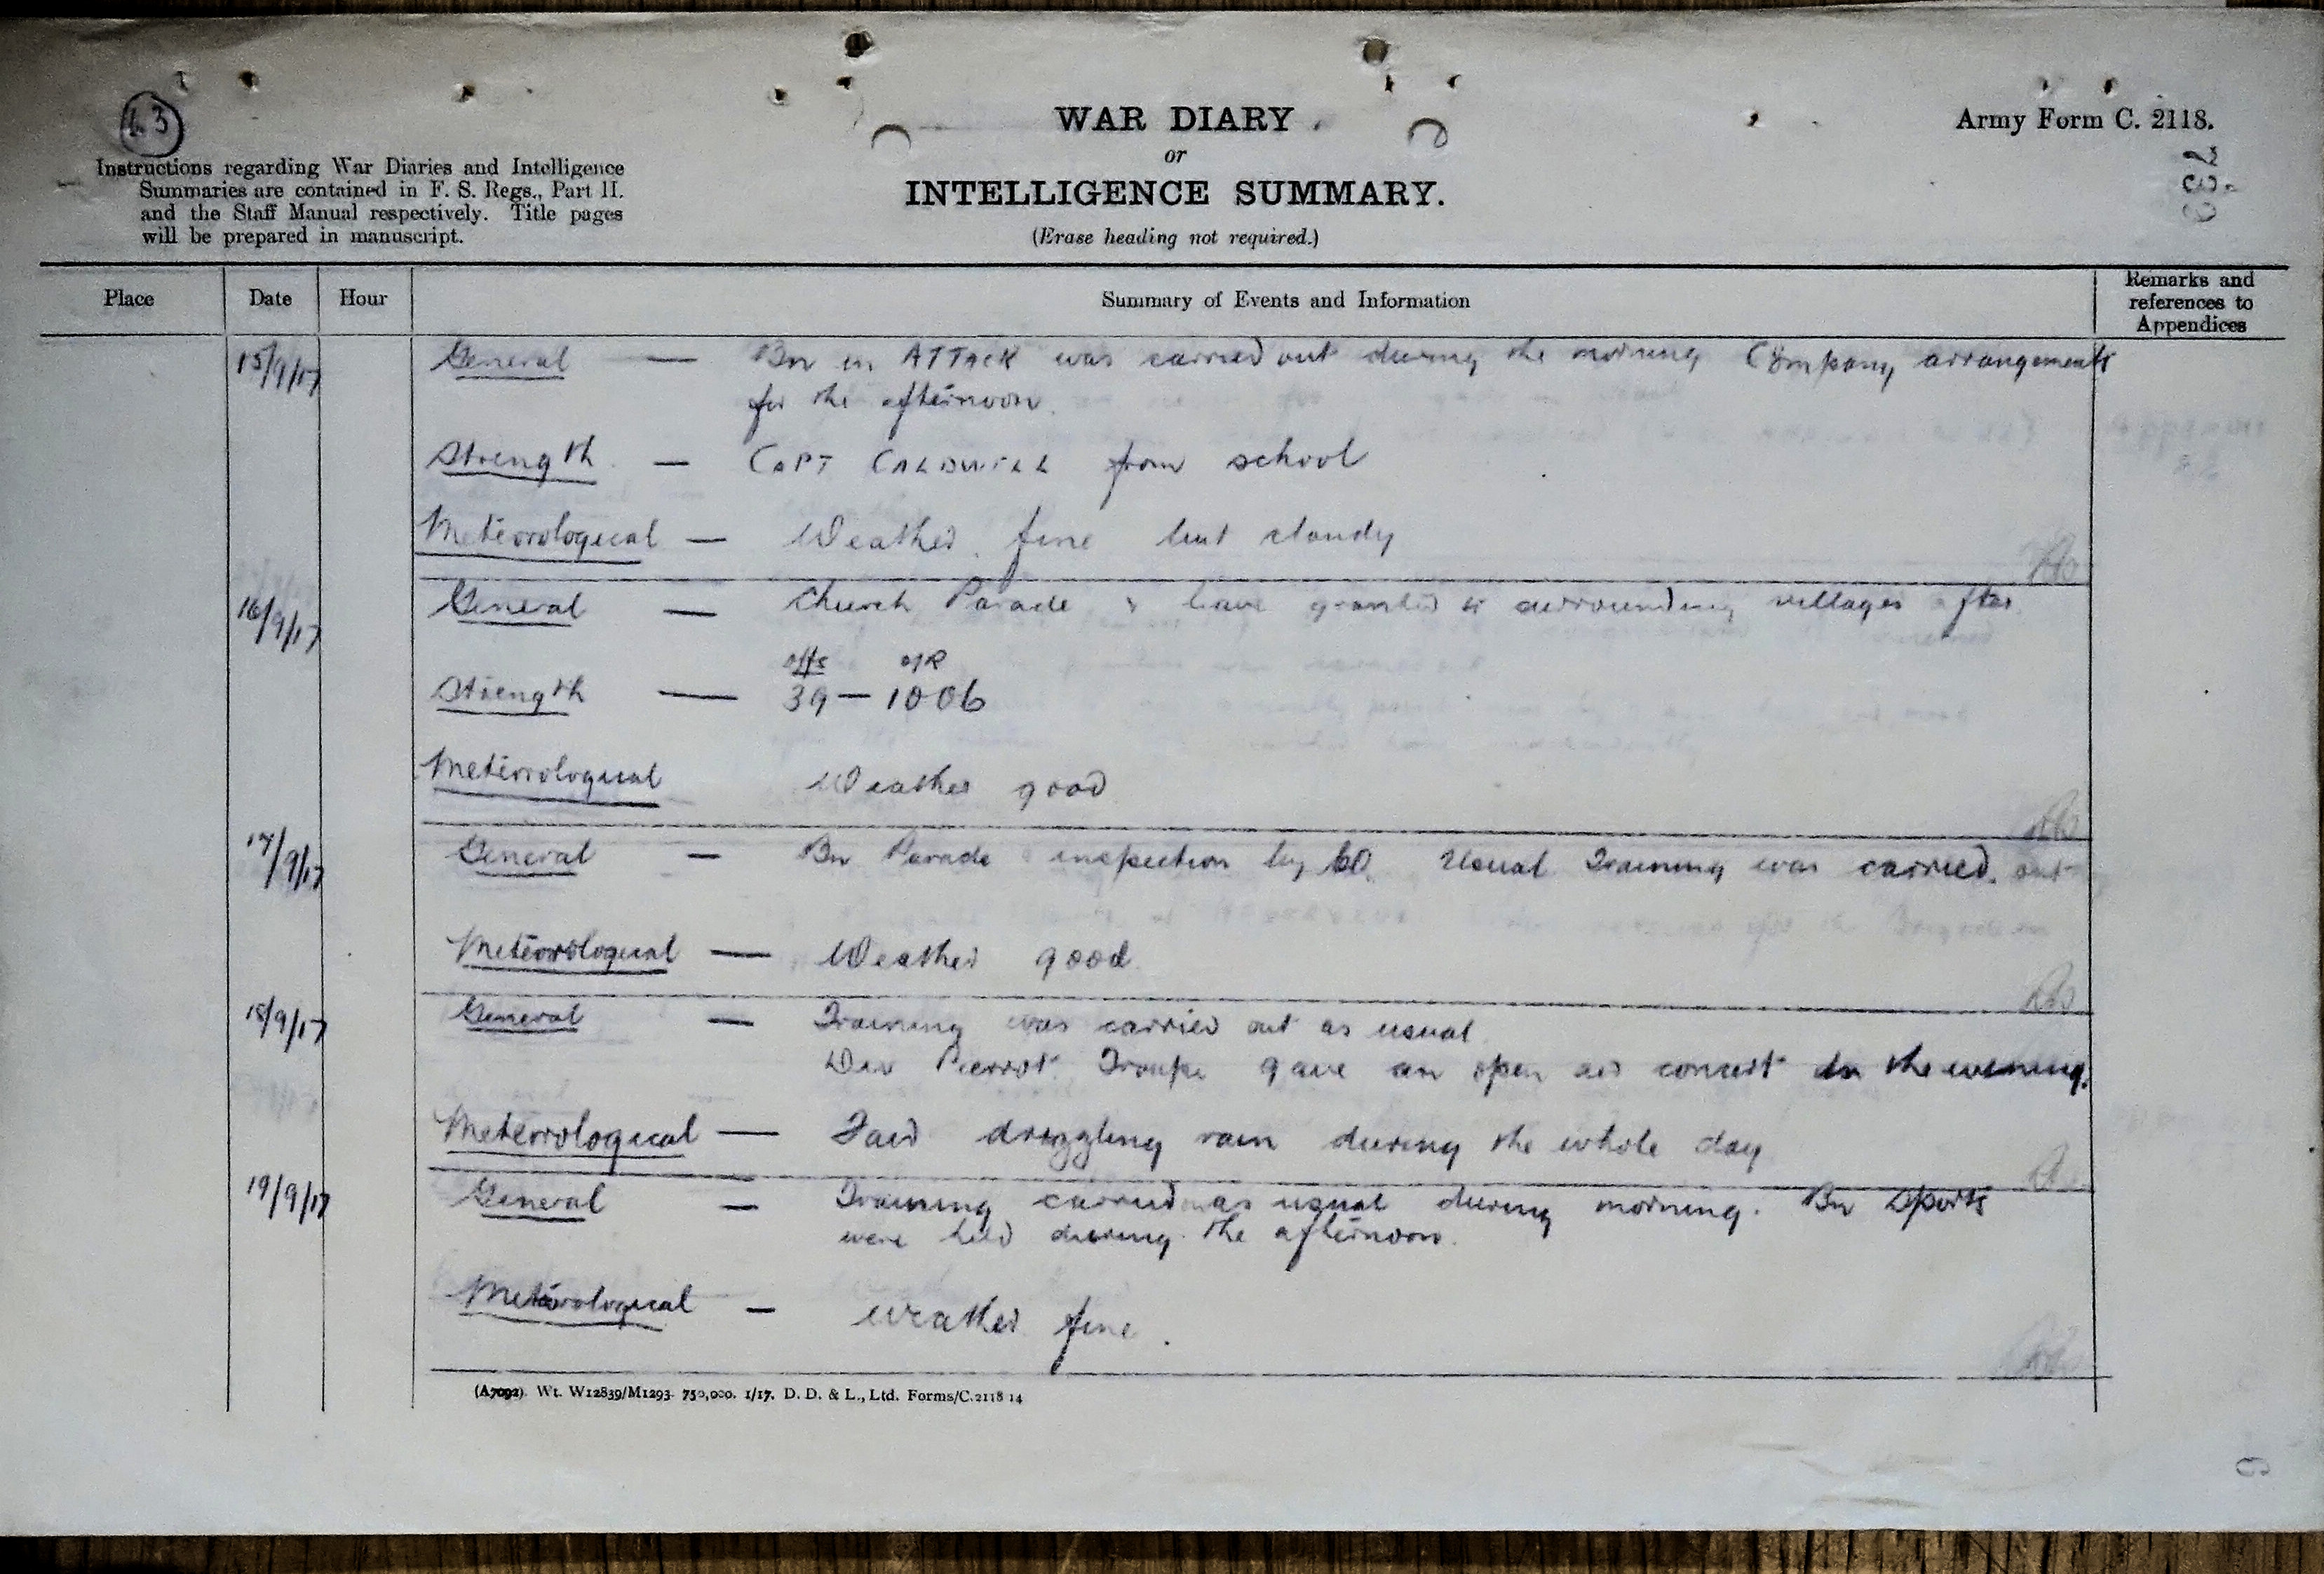 43
WAR DIARY
or
INTELLIGENCE SUMMARY.
(Erase heading not required.)
Army Form C. 2118.
Instructions regarding War Diaries and Intelligence
Summaries are contained in F. S. Regs., Part II.
and the Staff Manual respectively. Title pages
will be prepared in manuscript.
Place
Date
Hour
Summary of Events and Information
Remarks and
references to
Appendices
15/9/17 General — Bn in ATTACK was carried out during the morning Company arrangements
for the afternoon.
Strength — CAPT CALDWELL from school
Meteorological — Weather fine but cloudy
16/9/17 General — Church Parade & leave granted to surrounding villages after
offs O/R
Strength — 39 — 1006
Meteorological Weather good
17/9/17 General — Bn Parade inspection by CO. Usual Training was carried out
Meteorological — Weather good
18/9/17 General — Training was carried out as usual
Div Pierrot Troupe gave an open air concert in the evening.
Meteorological — Fair drizzling rain during the whole day
19/9/17 General — Training carried as usual during morning. Bn Sports
were held during the afternoon.
Meteorological — Weather fine.
(A7092) Wt. W12839/M1293. 750,000. 1/17. D. D. & L., Ltd. Forms/C.2118 14